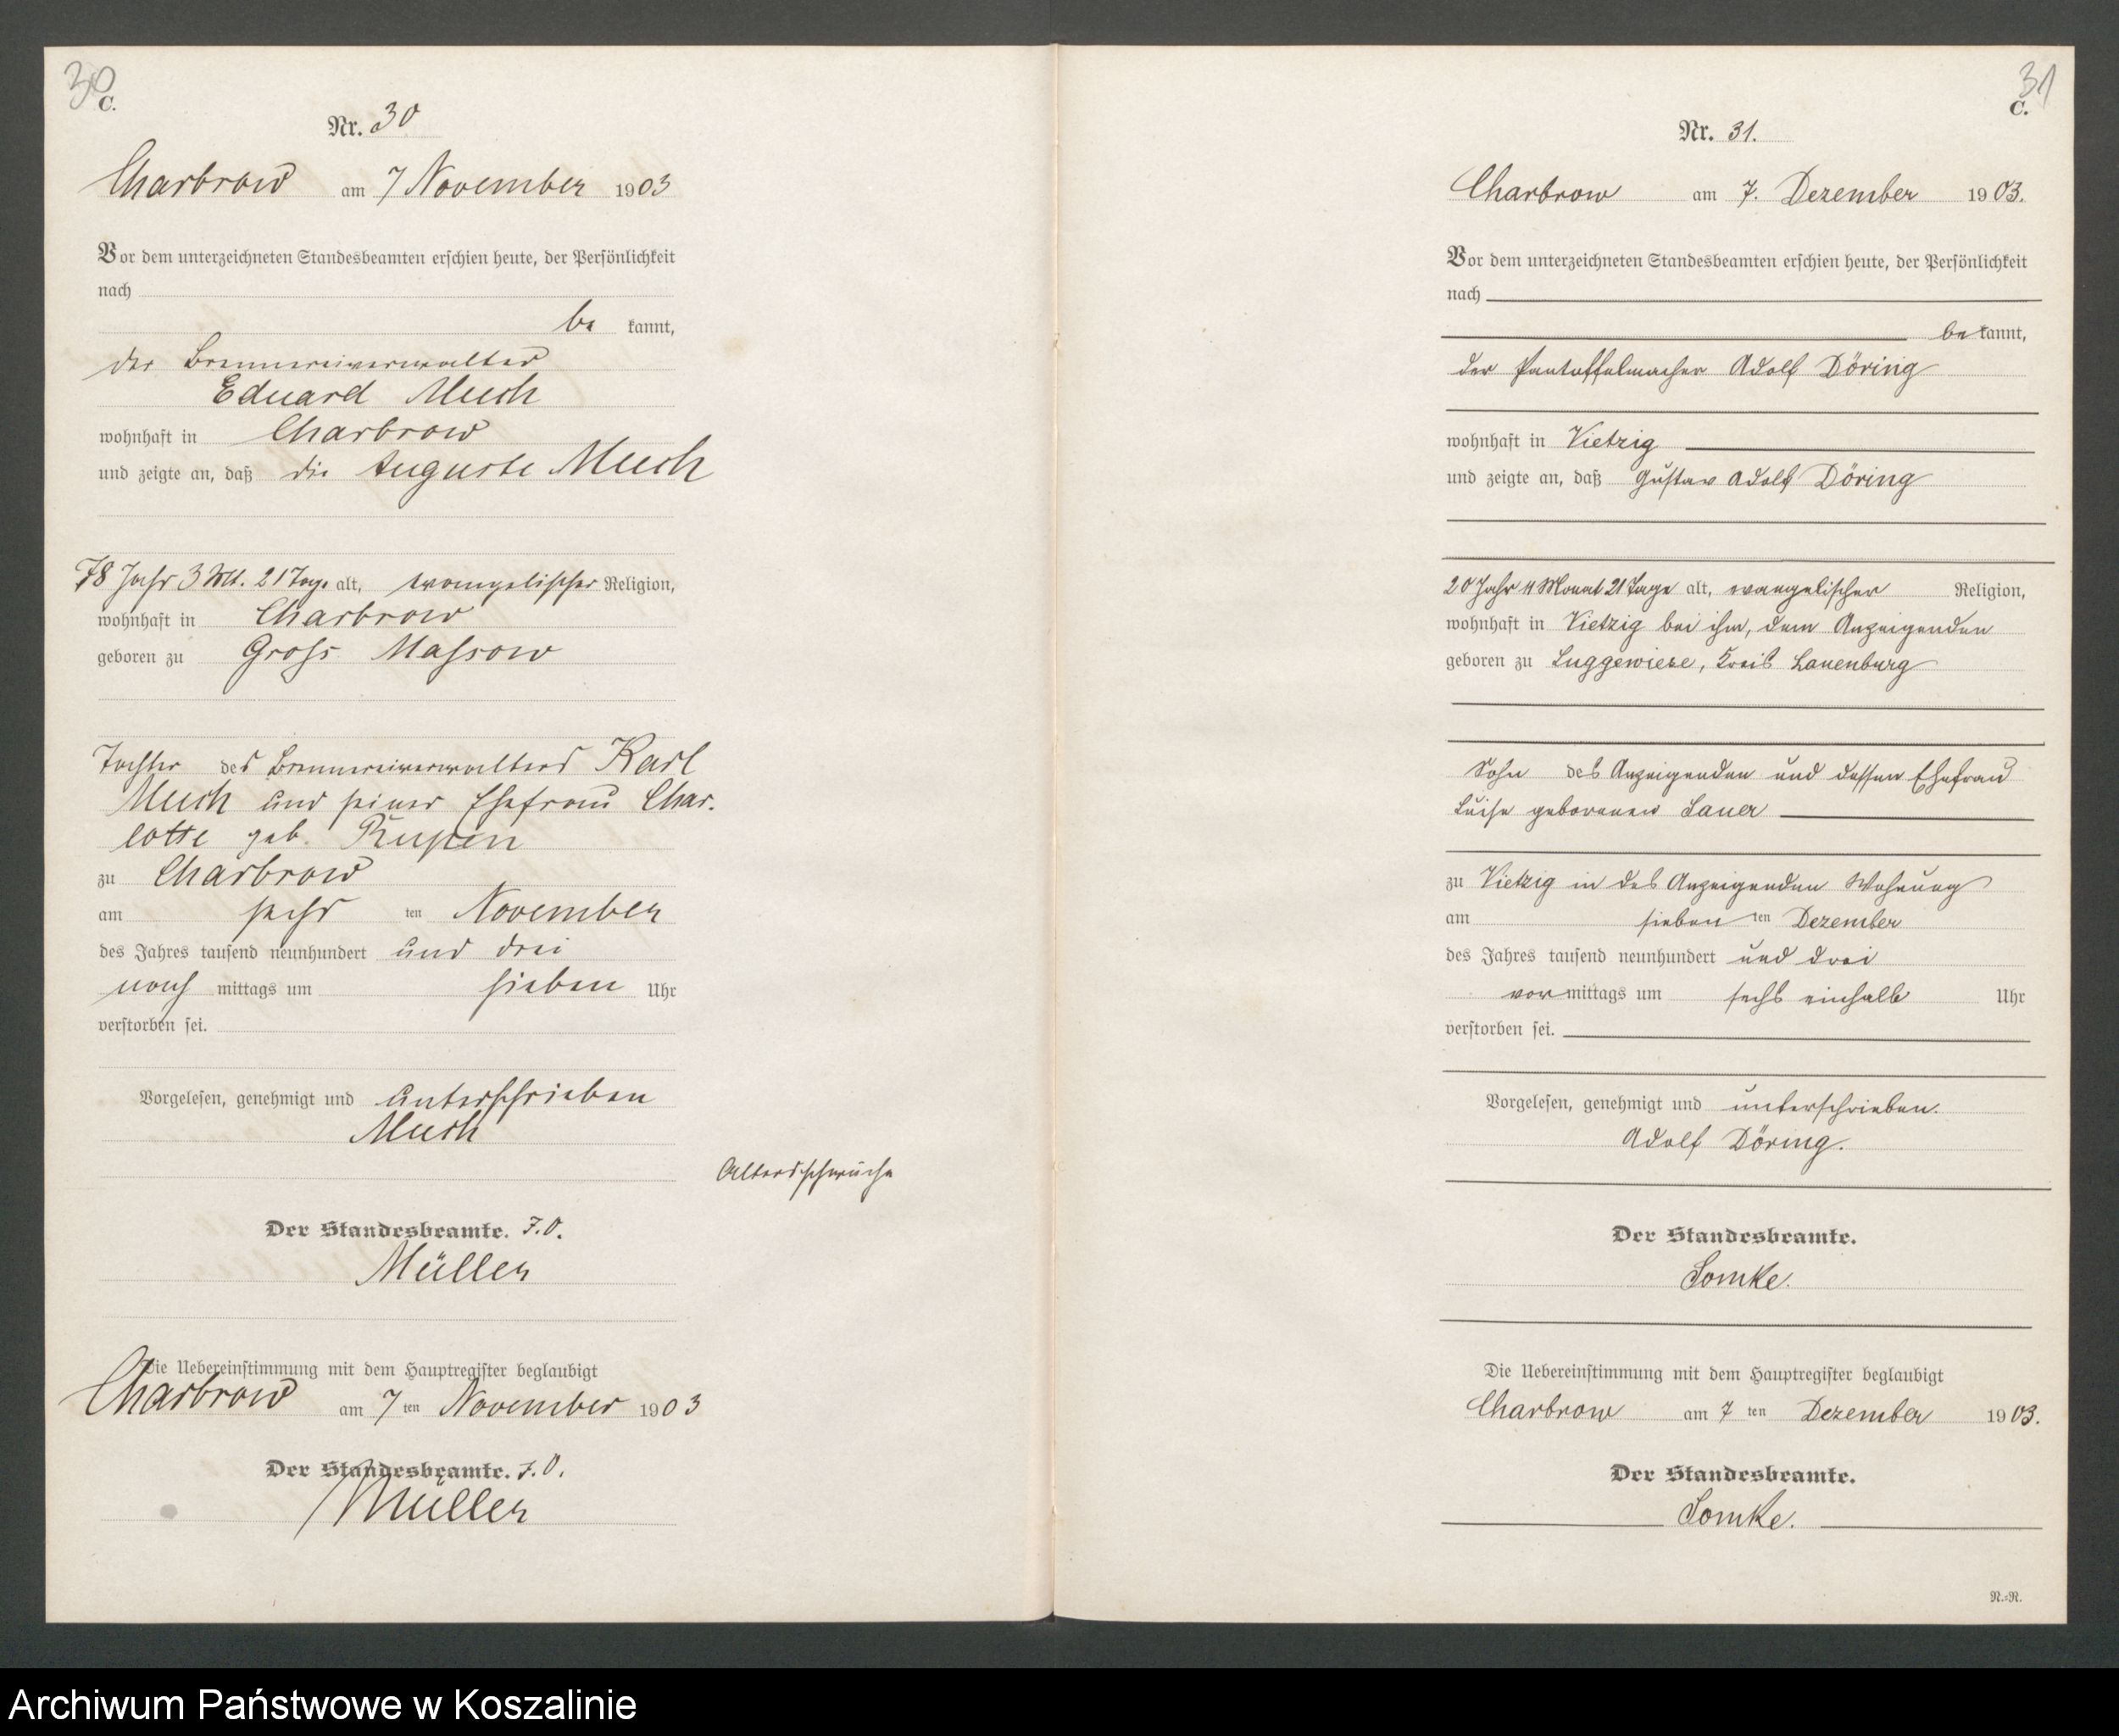 30
C.
Nr. 30
Charbrow am 7 November 1903
Vor dem unterzeichneten Standesbeamten erschien heute, der Persönlichkeit
nach
be kannt,
der Brennereiverwalter
Eduard Much
wohnhaft in Charbrow
und zeigte an, daß die Auguste Much
78 Jahr 3 Mt. 21 Tage alt, evangelischer Religion,
wohnhaft in Charbrow
geboren zu Gross Massow
Tochter des Brennereiverwalters Karl
Much und seiner Ehefrau Char.
lotte geb.
zu Charbrow
am sechs ten November
des Jahres tausend neunhundert und drei
nach mittags um sieben Uhr
verstorben sei.
Vorgelesen, genehmigt und unterschrieben
Much
Altersschwäche
Der Standesbeamte.
Müller
Die Uebereinstimmung mit dem Hauptregister beglaubigt
Charbrow am 7 ten November 1903
Der Standesbeamte.
Müller
31
C.
Nr. 31.
Charbrow am 7. Dezember 1903.
Vor dem unterzeichneten Standesbeamten erschien heute, der Persönlichkeit
nach
be kannt,
der Pantoffelmacher Adolf Döring
wohnhaft in Vietzig
und zeigte an, daß Gustav Adolf Döring
20 Jahr 4 Monat 21 Tage alt, evangelischer Religion,
wohnhaft in Vietzig bei ihm, dem Anzeigenden
geboren zu Luggewiese, Kreis Lauenburg
Sohn des Anzeigenden und dessen Ehefrau
Luise geborenen Lauer
zu Vietzig in des Anzeigenden Wohnung
am sieben ten Dezember
des Jahres tausend neunhundert und drei
vor mittags um sechs einhalb Uhr
verstorben sei.
Vorgelesen, genehmigt und unterschrieben.
Adolf Döring.
Der Standesbeamte.
Lomke.
Die Uebereinstimmung mit dem Hauptregister beglaubigt
Charbrow am 7 ten Dezember 1903.
Der Standesbeamte.
Lomke.
N.=N.
Archiwum Państwowe w Koszalinie